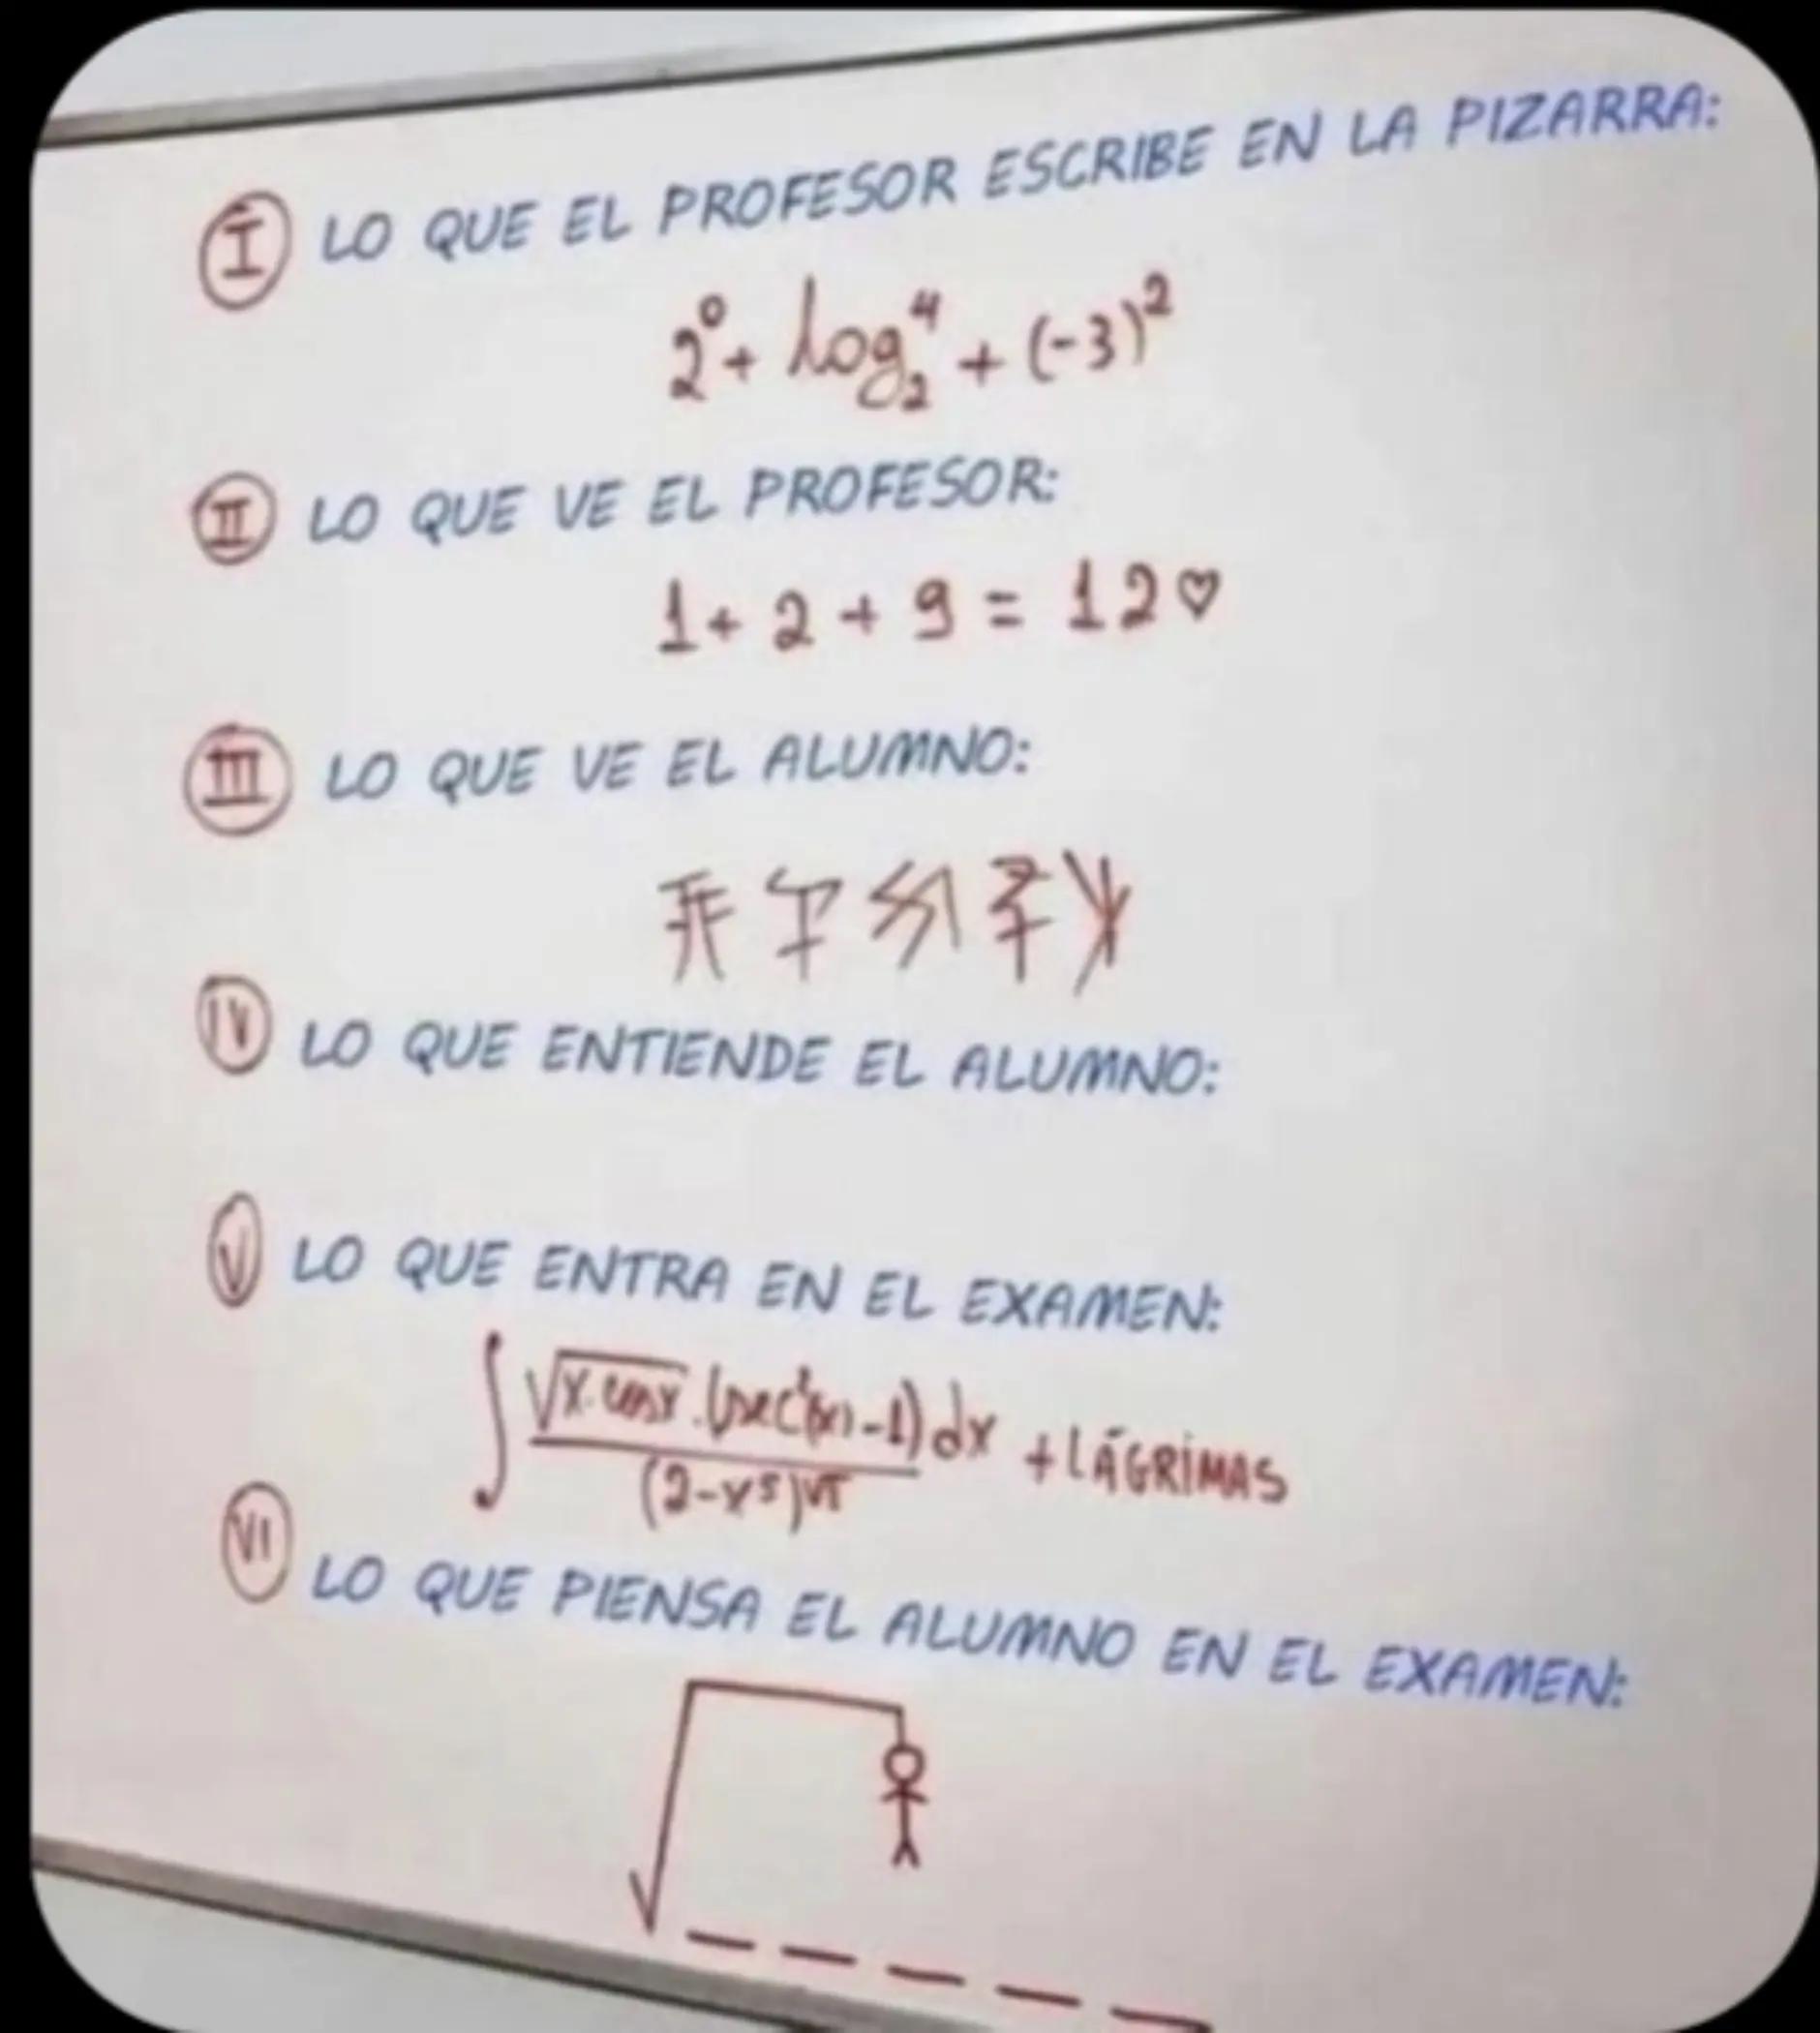 I LO QUE EL PROFESOR ESCRIBE EN LA PIZARRA:
2⁰ + log₂⁴ + (-3)²
II LO QUE VE EL PROFESOR:
1 + 2 + 9 = 12 ♡
III LO QUE VE EL ALUMNO:
IV LO QUE ENTIENDE EL ALUMNO:
V LO QUE ENTRA EN EL EXAMEN:
∫ √(x·cosx)·(sec²(x)-1) dx + LÁGRIMAS
(2-x⁵)
VI LO QUE PIENSA EL ALUMNO EN EL EXAMEN: